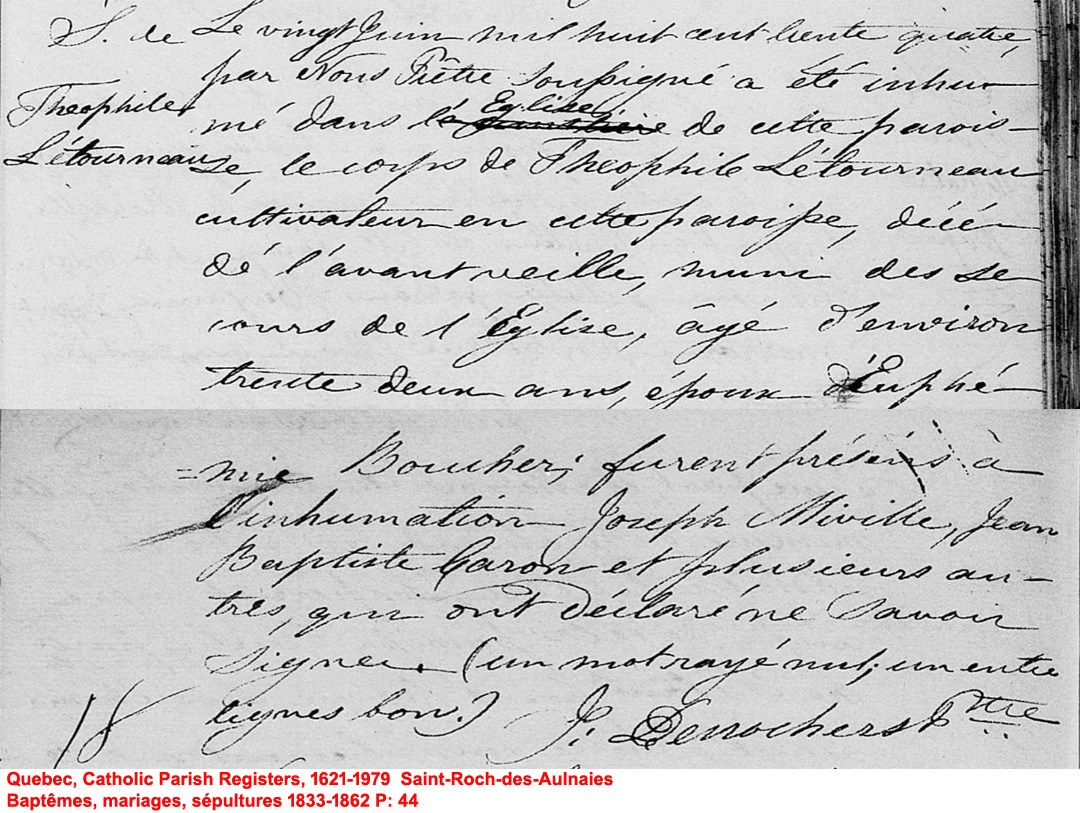 S. de Le vingt Juin mil huit cent trente quatre,
par Nous Prêtre soussigné a été inhu-
Theophile
mé dans l'Eglise de cette parois-
Létourneau
se, le corps de Théophile Létourneau
cultivateur en cette paroisse, décé-
dé l'avant veille, muni des se
cours de l'Église, âgé d'environ
trente deux ans, époux d'Euphé-
=mie Boucher; furent présens à
l'inhumation Joseph Miville, Jean
Baptiste Caron et plusieurs au-
tres, qui ont déclaré ne savoir
signer. (un mot rayé nul; un entre
lignes bon.) J. Desrochers Ptre
18
Quebec, Catholic Parish Registers, 1621-1979 Saint-Roch-des-Aulnaies
Baptêmes, mariages, sépultures 1833-1862 P: 44